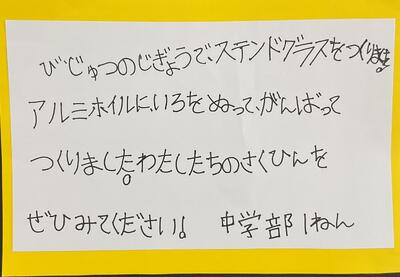 びじゅつのじぎょうで、ステンドグラスをつくりました。
アルミホイルに、いろをぬって、がんばって
つくりました。わたしたちのさくひんを
ぜひみてください。 中学部1ねん